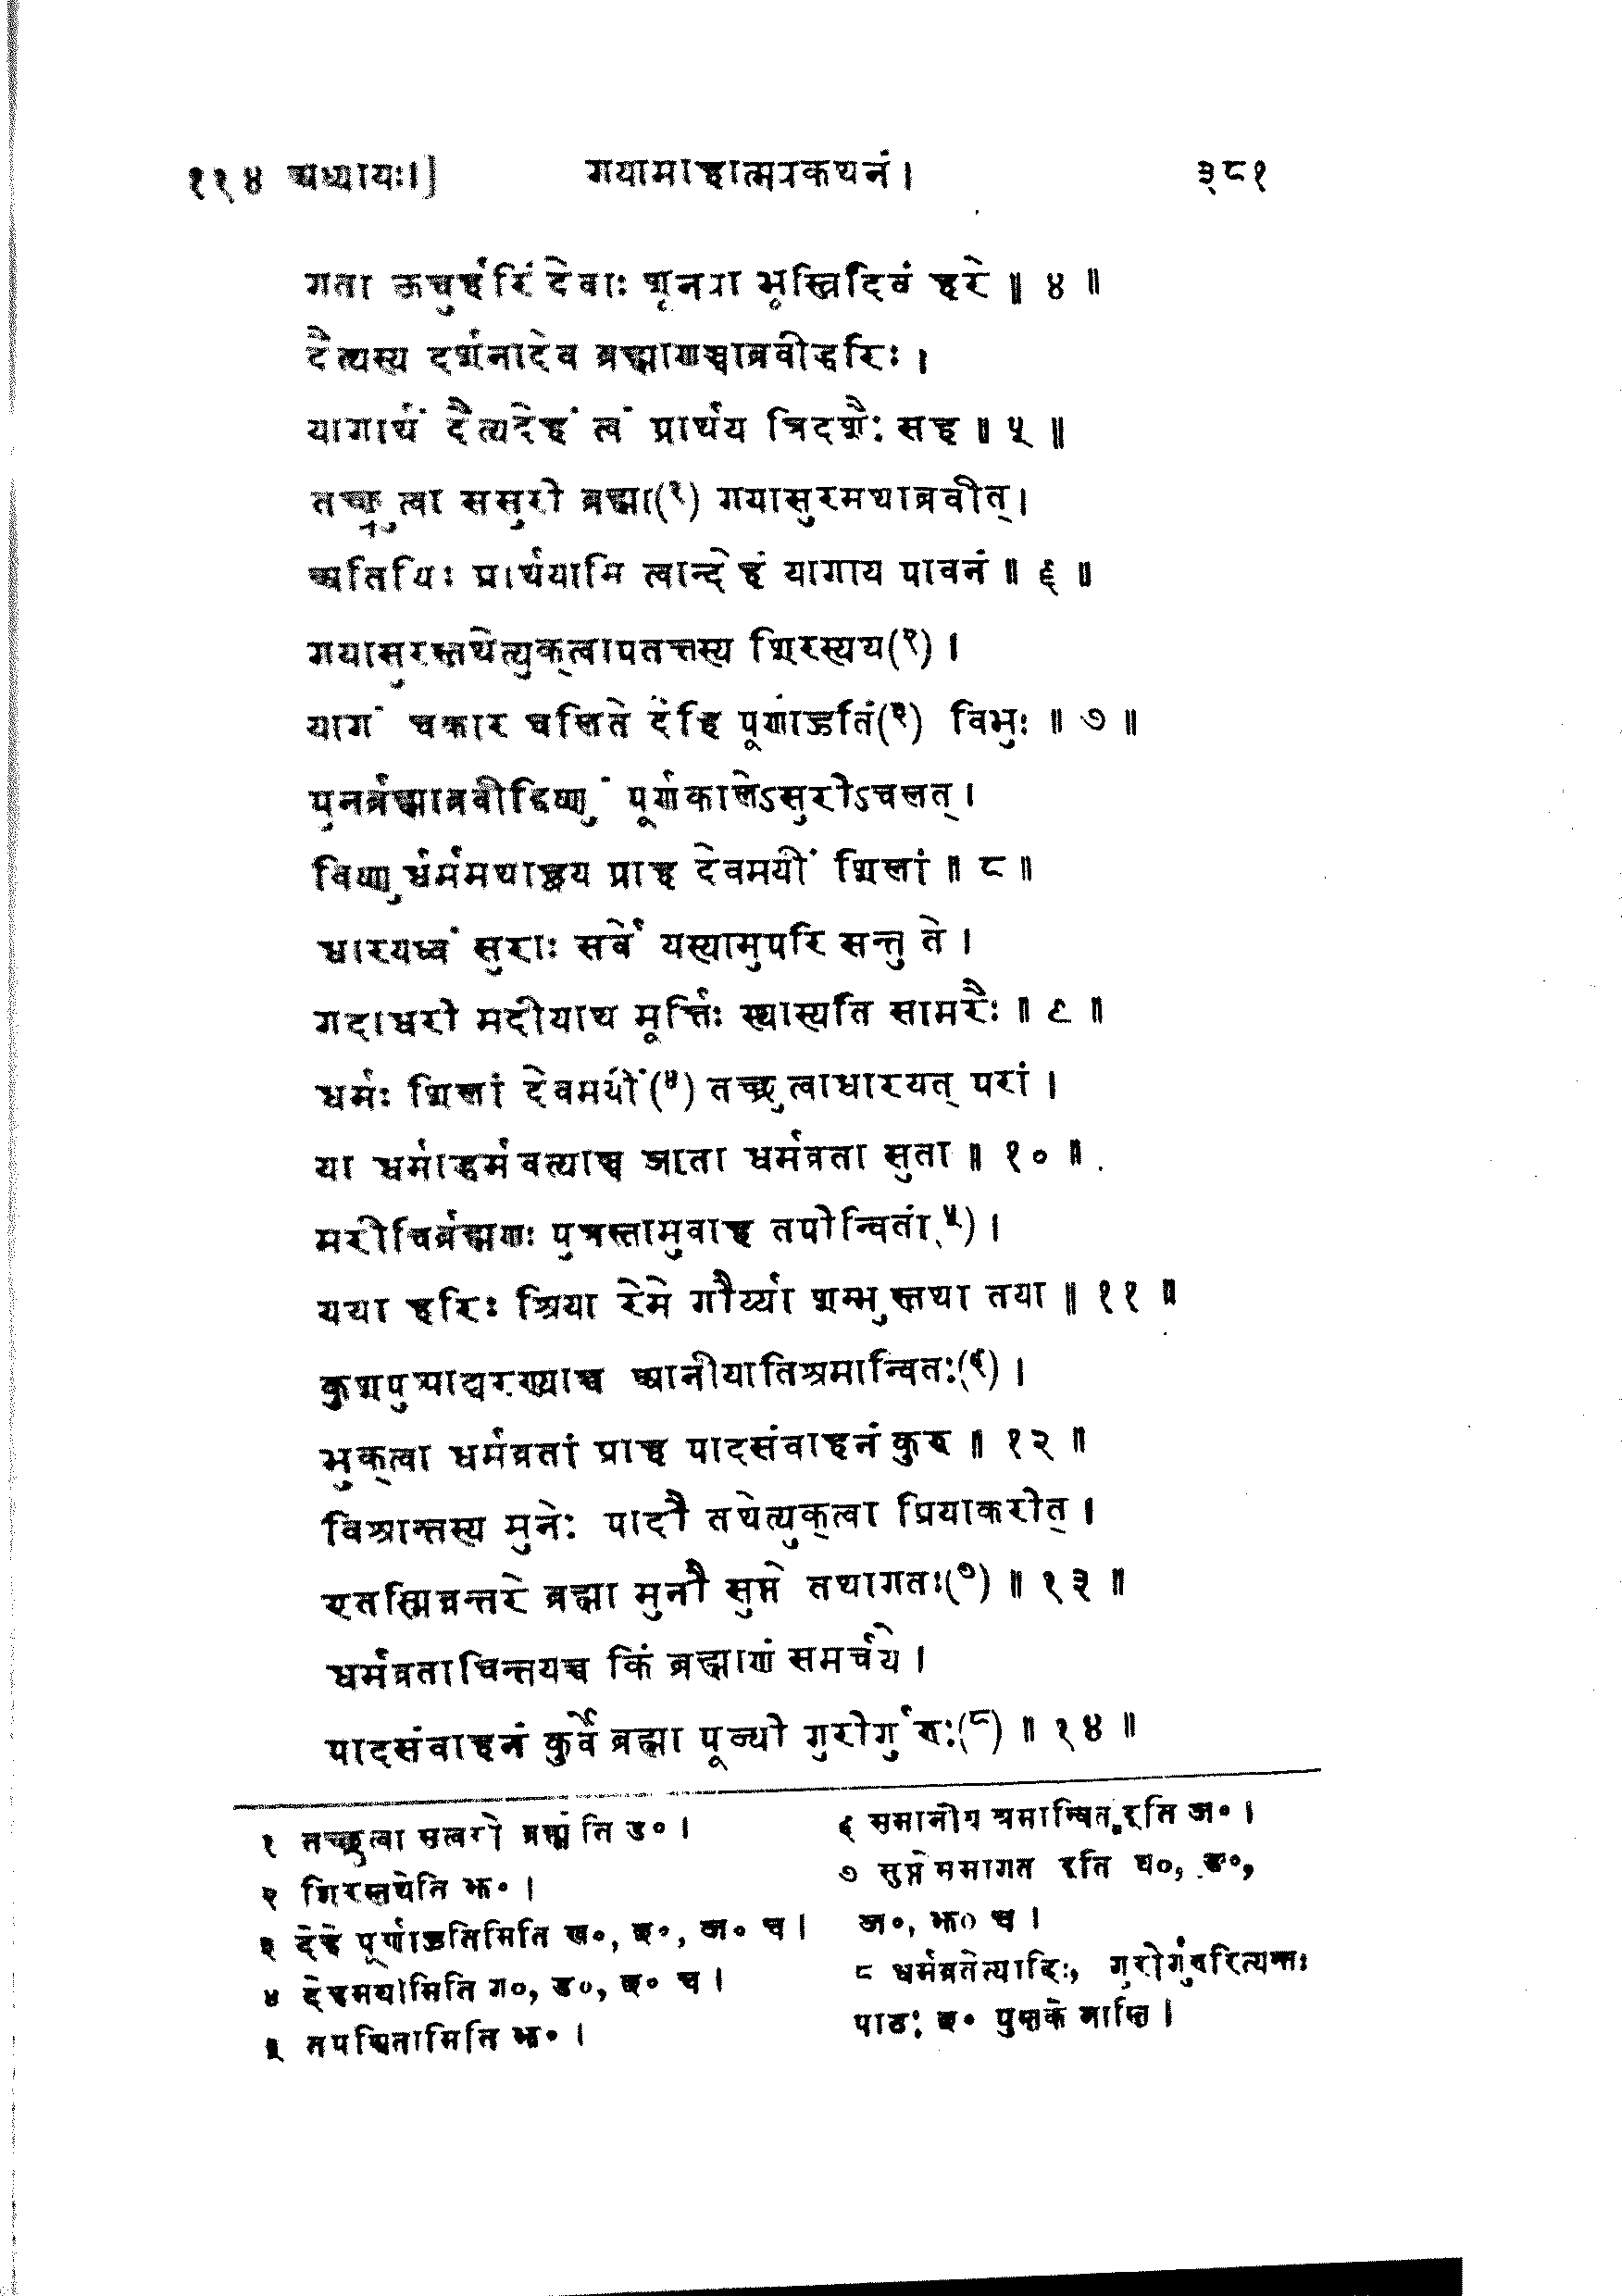 ११४ अध्यायः।] गयामाहात्म्यकथनं। ३८१
गता ऊचुर्हरिं देवाः शून्या भूस्त्रिदिवं हरे ॥ ४ ॥
दैत्यस्य दर्शनादेव ब्रह्माणञ्चाब्रवीद्धरिः ।
यागार्थं दैत्यदेहं त्वं प्रार्थय त्रिदशैः सह ॥ ५ ॥
तच्छ्रुत्वा ससुरो ब्रह्मा(१) गयासुरमथाब्रवीत्।
अतिथिः प्रार्थयामि त्वान्देहं यागाय पावनं ॥ ६ ॥
गयासुरस्तथेत्युक्त्वापतत्तस्य शिरस्यथ(२) ।
यागं चकार चलिते देहि पूर्णाहुतिं(३) विभुः ॥ ७ ॥
पुनर्ब्रह्माब्रवीद्विष्णुं पूर्णकालेऽसुरोऽचलत्।
विष्णुर्धर्ममथाहूय प्राह देवमयीं शिलां ॥ ८ ॥
धारयध्वं सुराः सर्वे यस्यामुपरि सन्तु ते ।
गदाधरो मदीयाथ मूर्त्तिः स्थास्यति सामरैः ॥ ९ ॥
धर्मः शिलां देवमयीं(४) तच्छ्रुत्वाधारयत् परां ।
या धर्माद्धर्मवत्याञ्च जाता धर्मव्रता सुता ॥ १० ॥
मरीचिर्ब्रह्मणः पुत्रस्तामुवाह तपोन्वितां(५) ।
यथा हरिः श्रिया रेमे गौर्य्या शम्भुस्तथा तया ॥ ११ ॥
कुशपुष्पाद्यरण्याच्च आनीयातिश्रमान्वितः(६) ।
भुक्त्वा धर्मव्रतां प्राह पादसंवाहनं कुरु ॥ १२ ॥
विश्रान्तस्य मुनेः पादौ तथेत्युक्त्वा प्रियाकरोत् ।
एतस्मिन्नन्तरे ब्रह्मा मुनौ सुप्ते तथागतः(७) ॥ १३ ॥
धर्मव्रताचिन्तयच्च किं ब्रह्माणं समर्चये ।
पादसंवाहनं कुर्वे ब्रह्मा पूज्यो गुरोर्गुरुः(८) ॥ १४ ॥
१ तच्छ्रुत्वा सत्वरो ब्रह्मेति ङ॰ ।
२ शिरस्तथेति झ॰ ।
३ देहे पूर्णाहुतिमिति ख॰, छ॰, ज॰ च ।
४ देहमयीमिति ग॰, ङ॰, छ॰ च ।
५ तपश्चितामिति झ॰ ।
६ समानीय श्रमान्वित इति ज॰ ।
७ सुप्ते समागत इति घ॰, ङ॰,
ज॰, झ॰ च ।
८ धर्मव्रतेत्यादिः, गुरोर्गुरुरित्यन्तः
पाठः छ॰ पुस्तके नास्ति ।